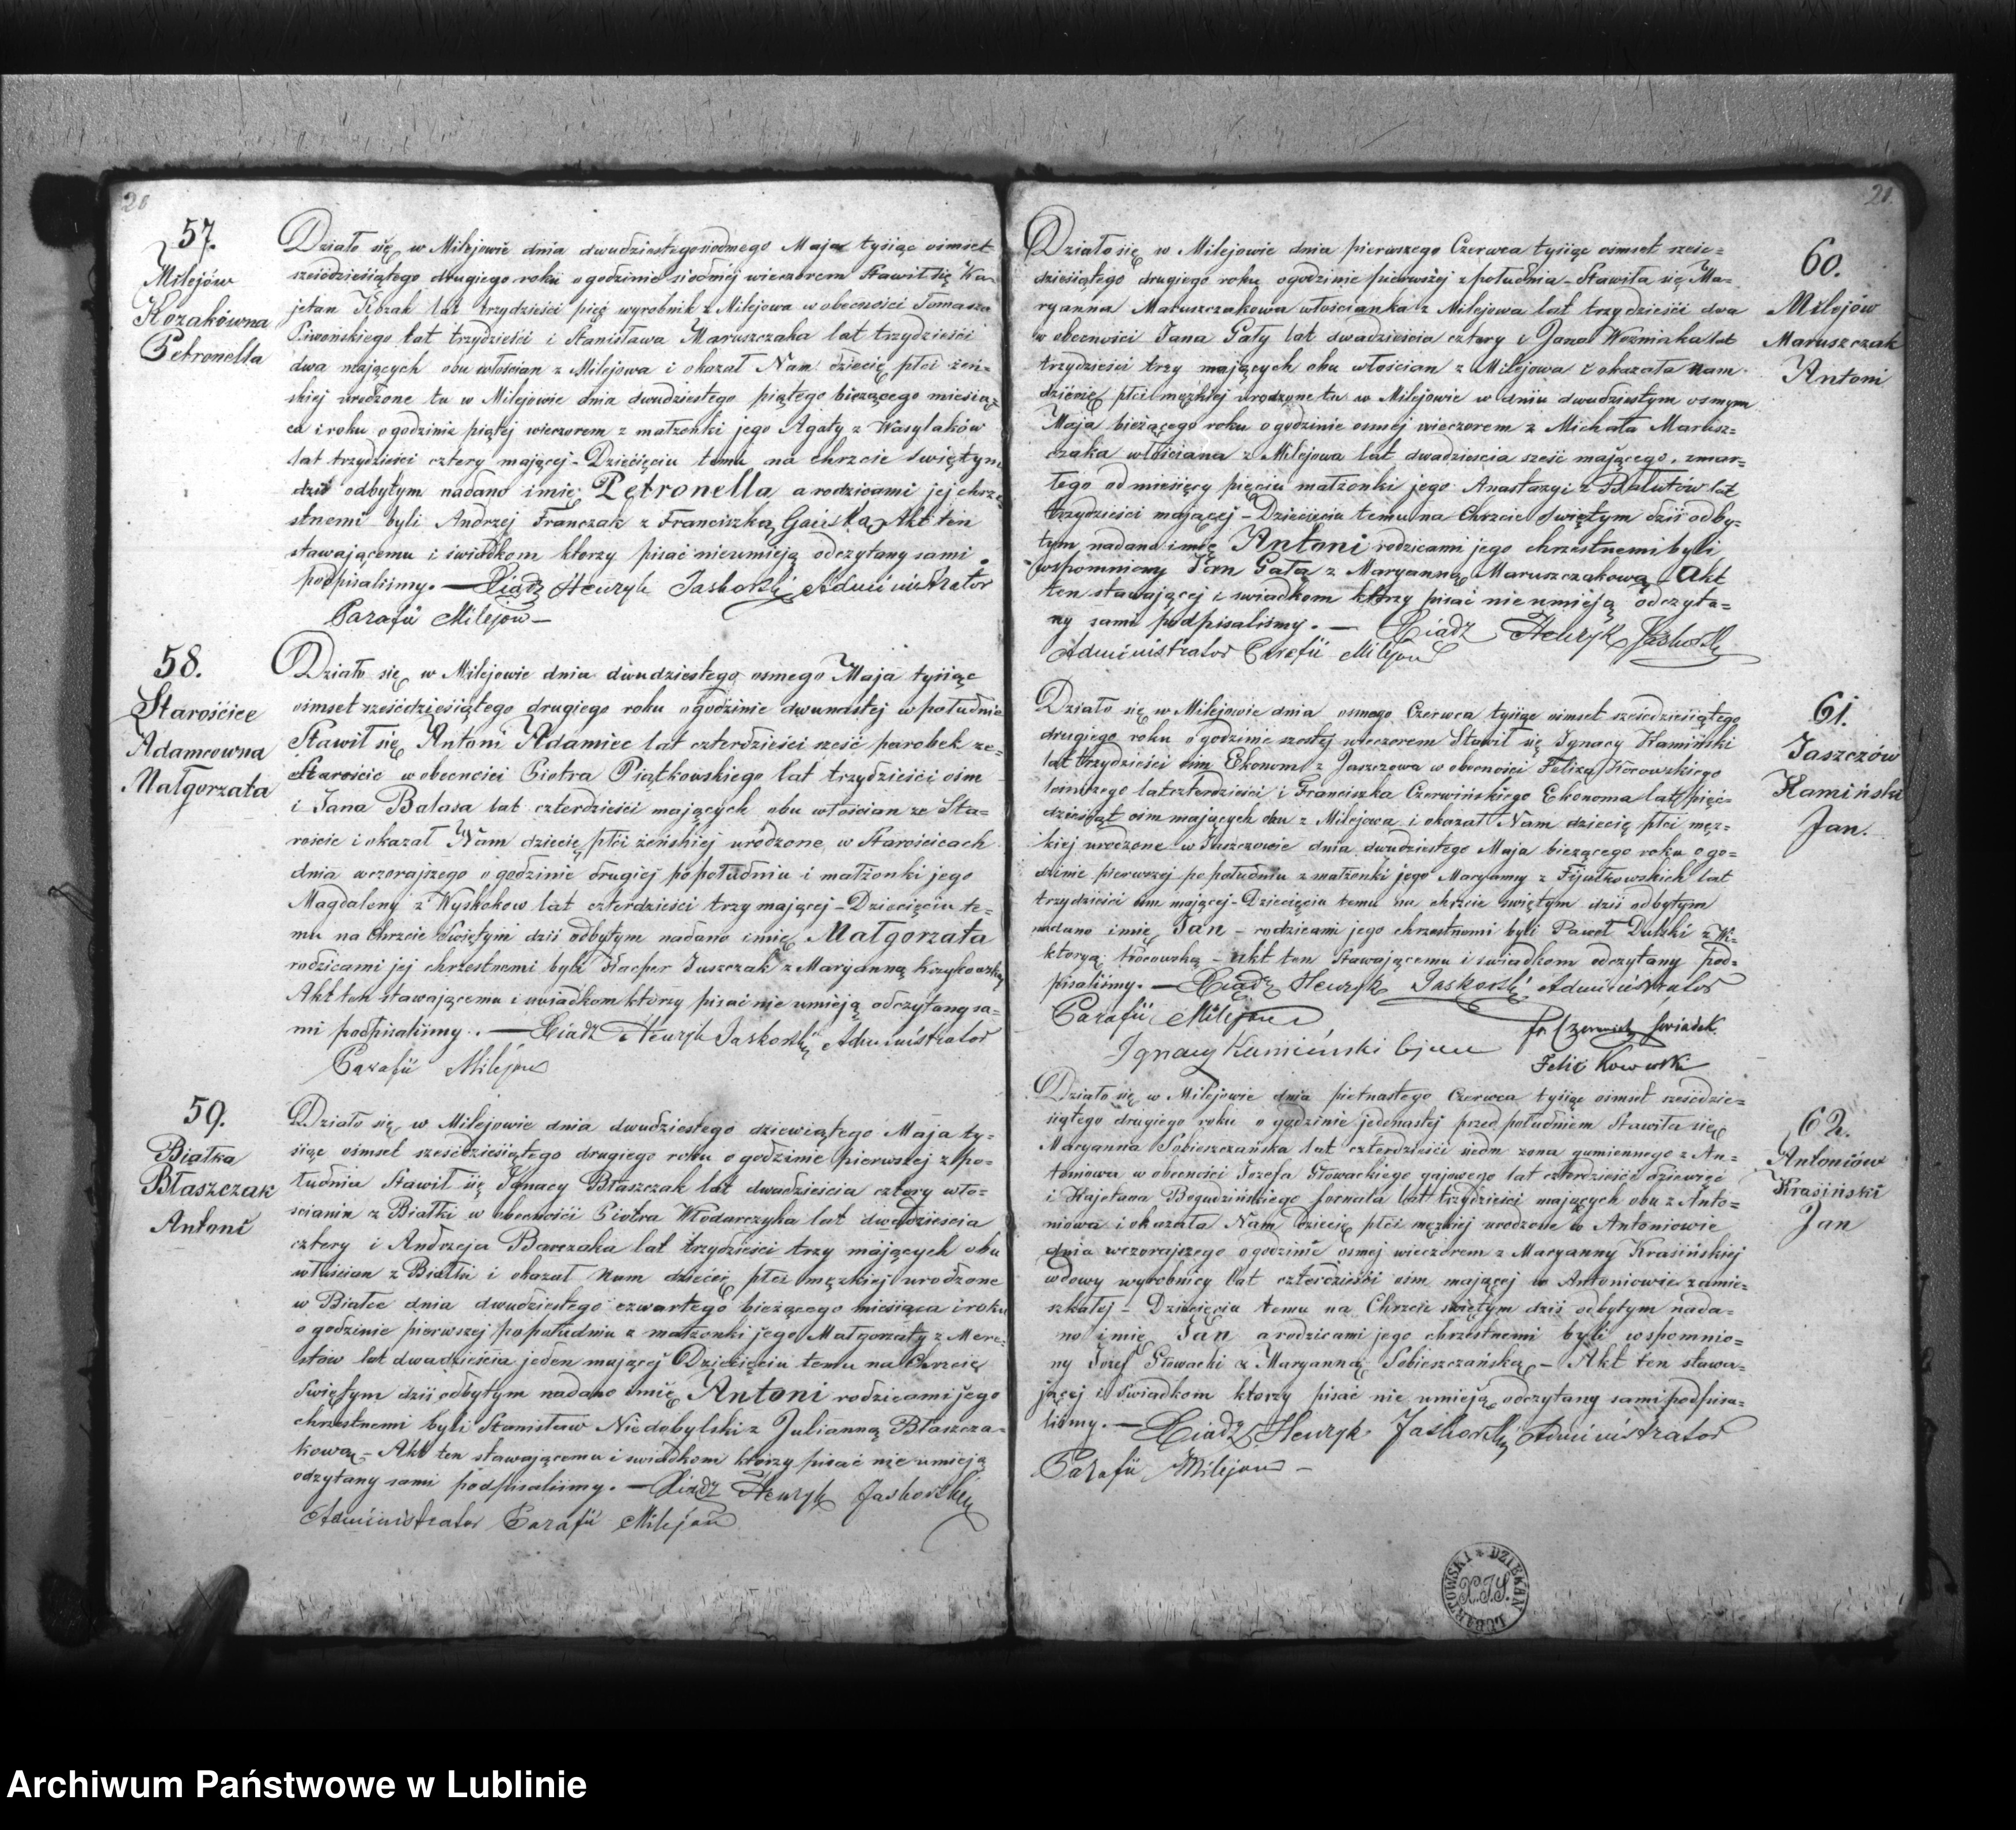 20
57.
Milejów
Kozakówna
Petronella
Działo się w Milejowie dnia dwudziestegosiodmego Maja tysiąc ośmset
sześćdziesiątego drugiego roku o godzinie siodmej wieczorem Stawił się Ka-
jetan Kozak lat trzydzieści pięć wyrobnik z Milejowa w obecności Tomasza
Piwońskiego lat trzydzieści i Stanisława Maruszczaka lat trzydzieści
dwa mających obu włościan z Milejowa i okazał Nam dziecię płci żeń-
skiej urodzone tu w Milejowie dnia dwudziestego piątego bieżącego miesią-
ca i roku o godzinie piątej wieczorem z małżonki jego Agaty z Wasylaków
lat trzydzieści cztery mającej - Dziecięciu temu na chrzcie świętym
dziś odbytym nadano imię Petronella a rodzicami jej chrze-
stnemi byli Andrzej Franczak z Franciszką Akt ten
stawającemu i świadkom ktorzy pisać nieumieją odczytany sami
podpisaliśmy. — Xiądz Henryk Jaskorski Administrator
Parafii Milejow —
58.
Starościce
Adamcowna
Małgorzata
Działo się w Milejowie dnia dwudziestego osmego Maja tysiąc
ośmset sześćdziesiątego drugiego roku o godzinie dwunastej w południe
Stawił się Antoni Adamiec lat czterdzieści sześć parobek ze
Starościc w obecności Piotra Piątkowskiego lat trzydzieści ośm
i Jana Bałasa lat czterdzieści mających obu włościan ze Sta=
rościc i okazał Nam dziecię płci żeńskiej urodzone w Starościcach
dnia wczorajszego o godzinie drugiej popołudniu i małżonki jego
Magdaleny z Wyskokow lat czterdzieści trzy mającej - Dziecięciu te=
mu na Chrzcie Świętym dziś odbytym nadano imię Małgorzata
rodzicami jej chrzestnemi byli Kacper Juszczak z Maryanną
Akt ten stawającemu i świadkom ktorzy pisać nie umieją odczytany sa=
mi podpisaliśmy. — Xiądz Henryk Jaskorski Administrator
Parafii Milejow
59.
Białka
Błaszczak
Antoni
Działo się w Milejowie dnia dwudziestego dziewiątego Maja ty=
siąc ośmset sześćdziesiątego drugiego roku o godzinie pierwszej z po=
łudnia Stawił się Ignacy Błaszczak lat dwadzieścia cztery wło=
ścianin z Białki w obecności Piotra Włodarczyka lat dwadzieścia
cztery i Andrzeja Barczaka lat trzydzieści trzy mających obu
włościan z Białki i okazał Nam dziecię płci męzkiej urodzone
w Białce dnia dwudziestego czwartego bieżącego miesiąca i roku
o godzinie pierwszej popołudniu z małżonki jego Małgorzaty z Mere=
stow lat dwadzieścia jeden mającej Dziecięciu temu na Chrzcie
Świętym dziś odbytym nadano imię Antoni rodzicami jego
chrzestnemi byli Stanisław Niedobylski z Julianną Błaszcza=
kową - Akt ten stawającemu i świadkom ktorzy pisać nie umieją
odczytany sami podpisaliśmy. — Xiądz Henryk Jaskorski
Administrator Parafii Milejow
21.
60.
Milejów
Maruszczak
Antoni
Działo się w Milejowie dnia pierwszego Czerwca tysiąc ośmset sześć=
dziesiątego drugiego roku o godzinie pierwszej z południa - Stawiła się Ma=
ryanna Maruszczakowa włościanka z Milejowa lat trzydzieści dwa
w obecności Jana Gały lat dwadzieścia cztery i Jana Wozniaka lat
trzydzieści trzy mających obu włościan z Milejowa i okazała Nam
dziecię płci męzkiej urodzone tu w Milejowie w dniu dwudziestym osmym
Maja bieżącego roku o godzinie osmej wieczorem z Michała Marusz=
czaka włościana z Milejowa lat dwadzieścia sześć mającego, zmar=
łego od miesięcy pięciu małżonki jego Anastazyi z Bałutów lat
trzydzieści mającej - Dziecięciu temu na Chrzcie Świętym dziś odby=
tym nadano imię Antoni rodzicami jego chrzestnemi byli
wspomniony Jan Gała z Maryanną Maruszczakową Akt
ten stawającej i swiadkom ktorzy pisać nie umieją odczyta=
ny sami podpisaliśmy. — Xiądz Henryk Jaskorski
Administrator Parafii Milejow
61.
Jaszczów
Kamiński
Jan.
Działo się w Milejowie dnia osmego Czerwca tysiąc ośmset sześćdziesiątego
drugiego roku o godzinie szostej wieczorem Stawił się Ignacy Kamiński
lat trzydzieści ośm Ekonom z Jaszczowa w obecności Felixa
leśniczego lat czterdzieści i Franciszka Czerwińskiego Ekonoma lat pięć=
dziesiąt ośm mających obu z Milejowa i okazał Nam dziecię płci męz=
kiej urodzone w Jaszczowie dnia dwudziestego Maja bieżącego roku o go=
dzinie pierwszej po południu z małżonki jego Maryanny z Fijałkowskich lat
trzydzieści ośm mającej - Dziecięciu temu na chrzcie świętym dziś odbytym
nadano imię Jan - rodzicami jego chrzestnemi byli Paweł Dulski z Wi=
ktoryą - Akt ten stawającemu i świadkom odczytany pod=
pisaliśmy. — Xiądz Henryk Jaskorski Administrator
Parafii Milejow
Ignacy Kamieński Ojciec
świadek
62.
Antoniów
Krasiński
Jan
Działo się w Milejowie dnia pietnastego Czerwca tysiąc ośmset sześćdzie=
siątego drugiego roku o godzinie jedenastej przed południem Stawiła się
Maryanna Sobieszczańska lat czterdzieści siedm zona gumiennego z An=
toniowa w obecności Jozefa Głowackiego gajowego lat czterdzieści dziewięć
i Kajetana Bogudzińskiego fornala lat trzydzieści mających obu z Anto=
niowa i okazała Nam dziecię płci męzkiej urodzone w Antoniowie
dnia wczorajszego o godzinie osmej wieczorem z Maryanny Krasińskiej
wdowy wyrobnicy lat czterdzieści ośm mającej w Antoniowie zamie=
szkałej - Dziecięciu temu na Chrzcie świętym dziś odbytym nada=
no imię Jan a rodzicami jego chrzestnemi byli wspomnio=
ny Jozef Głowacki z Maryanną Sobieszczańską - Akt ten stawa=
jącej i świadkom ktorzy pisać nie umieją odczytany sami podpisa=
liśmy. — Xiądz Henryk Jaskorski Administrator
Parafii Milejow —
DZIEKAN LUBARTOWSKI
X.J.S.
Archiwum Państwowe w Lublinie